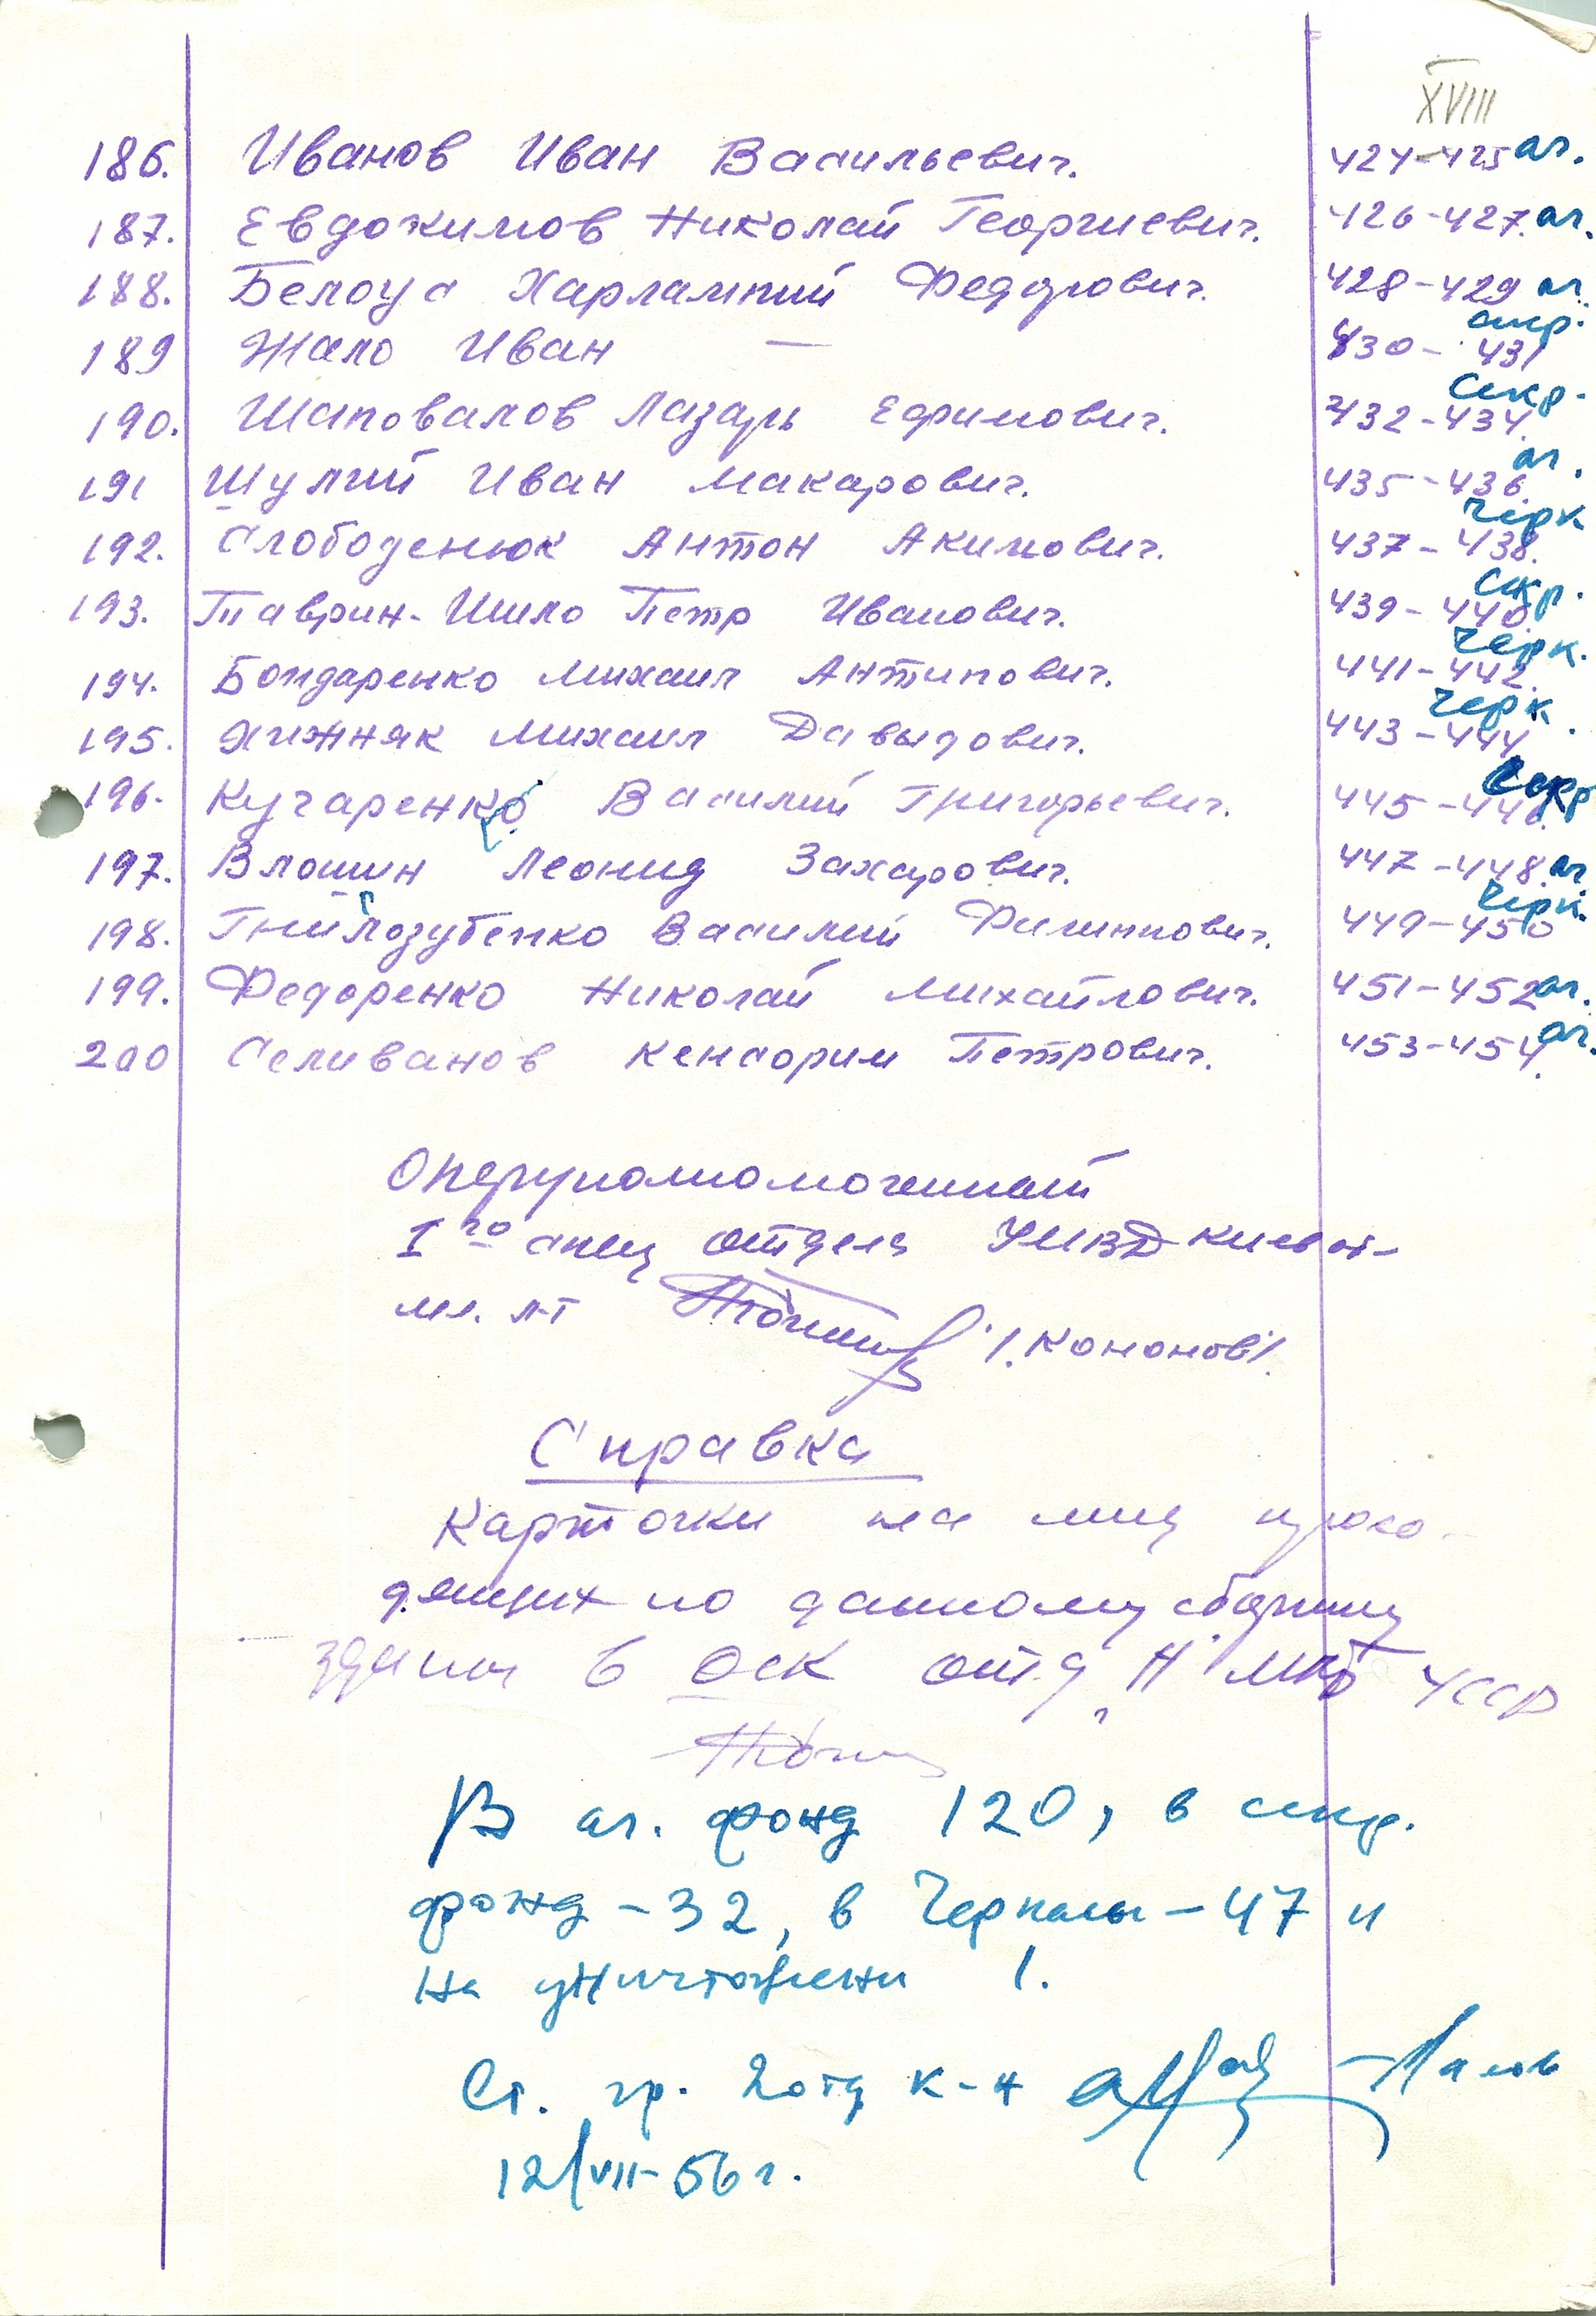 XVIII
186. Иванов Иван Васильевич. 424-425 аг.
187. Евдокимов Николай Георгиевич. 426-427. аг.
188. Белоус Харлампий Федорович. 428-429 аг.
189 Жало Иван — 430-431 секр.
190. Шаповалов Лазарь Ефимович. 432-434. секр.
191 Шулий Иван Макарович. 435-436. аг.
192. Слободенюк Антон Акимович. 437-438. Черк
193. Таврин-Шило Петр Иванович. 439-440. секр.
194. Бондаренко Михаил Антипович. 441-442. Черк.
195. Хижняк Михаил Давыдович. 443-444. Черк.
196. Кучаренко Василий Григорьевич. 445-446. секр
197. Влошин Леонид Захарович. 447-448. аг.
198. Гнилозубенко Василий Филиппович. 449-450 Черк.
199. Федоренко Николай Михайлович. 451-452 аг.
200 Селиванов Кенсорим Петрович. 453-454. аг.
Оперуполномоченный
1го спец отдела УМВД Киевск.
мл. л-т /Кононов/.
Справка
Карточки на лиц прохо-
дящих по данному сборнику
зданы в ОСК отд "Н" МГБ УССР
В аг. фонд 120, в секр.
фонд - 32, в Черкасы - 47 и
на уничтожени 1.
Ст. гр. 2 отд к-н
12/VII-56 г.